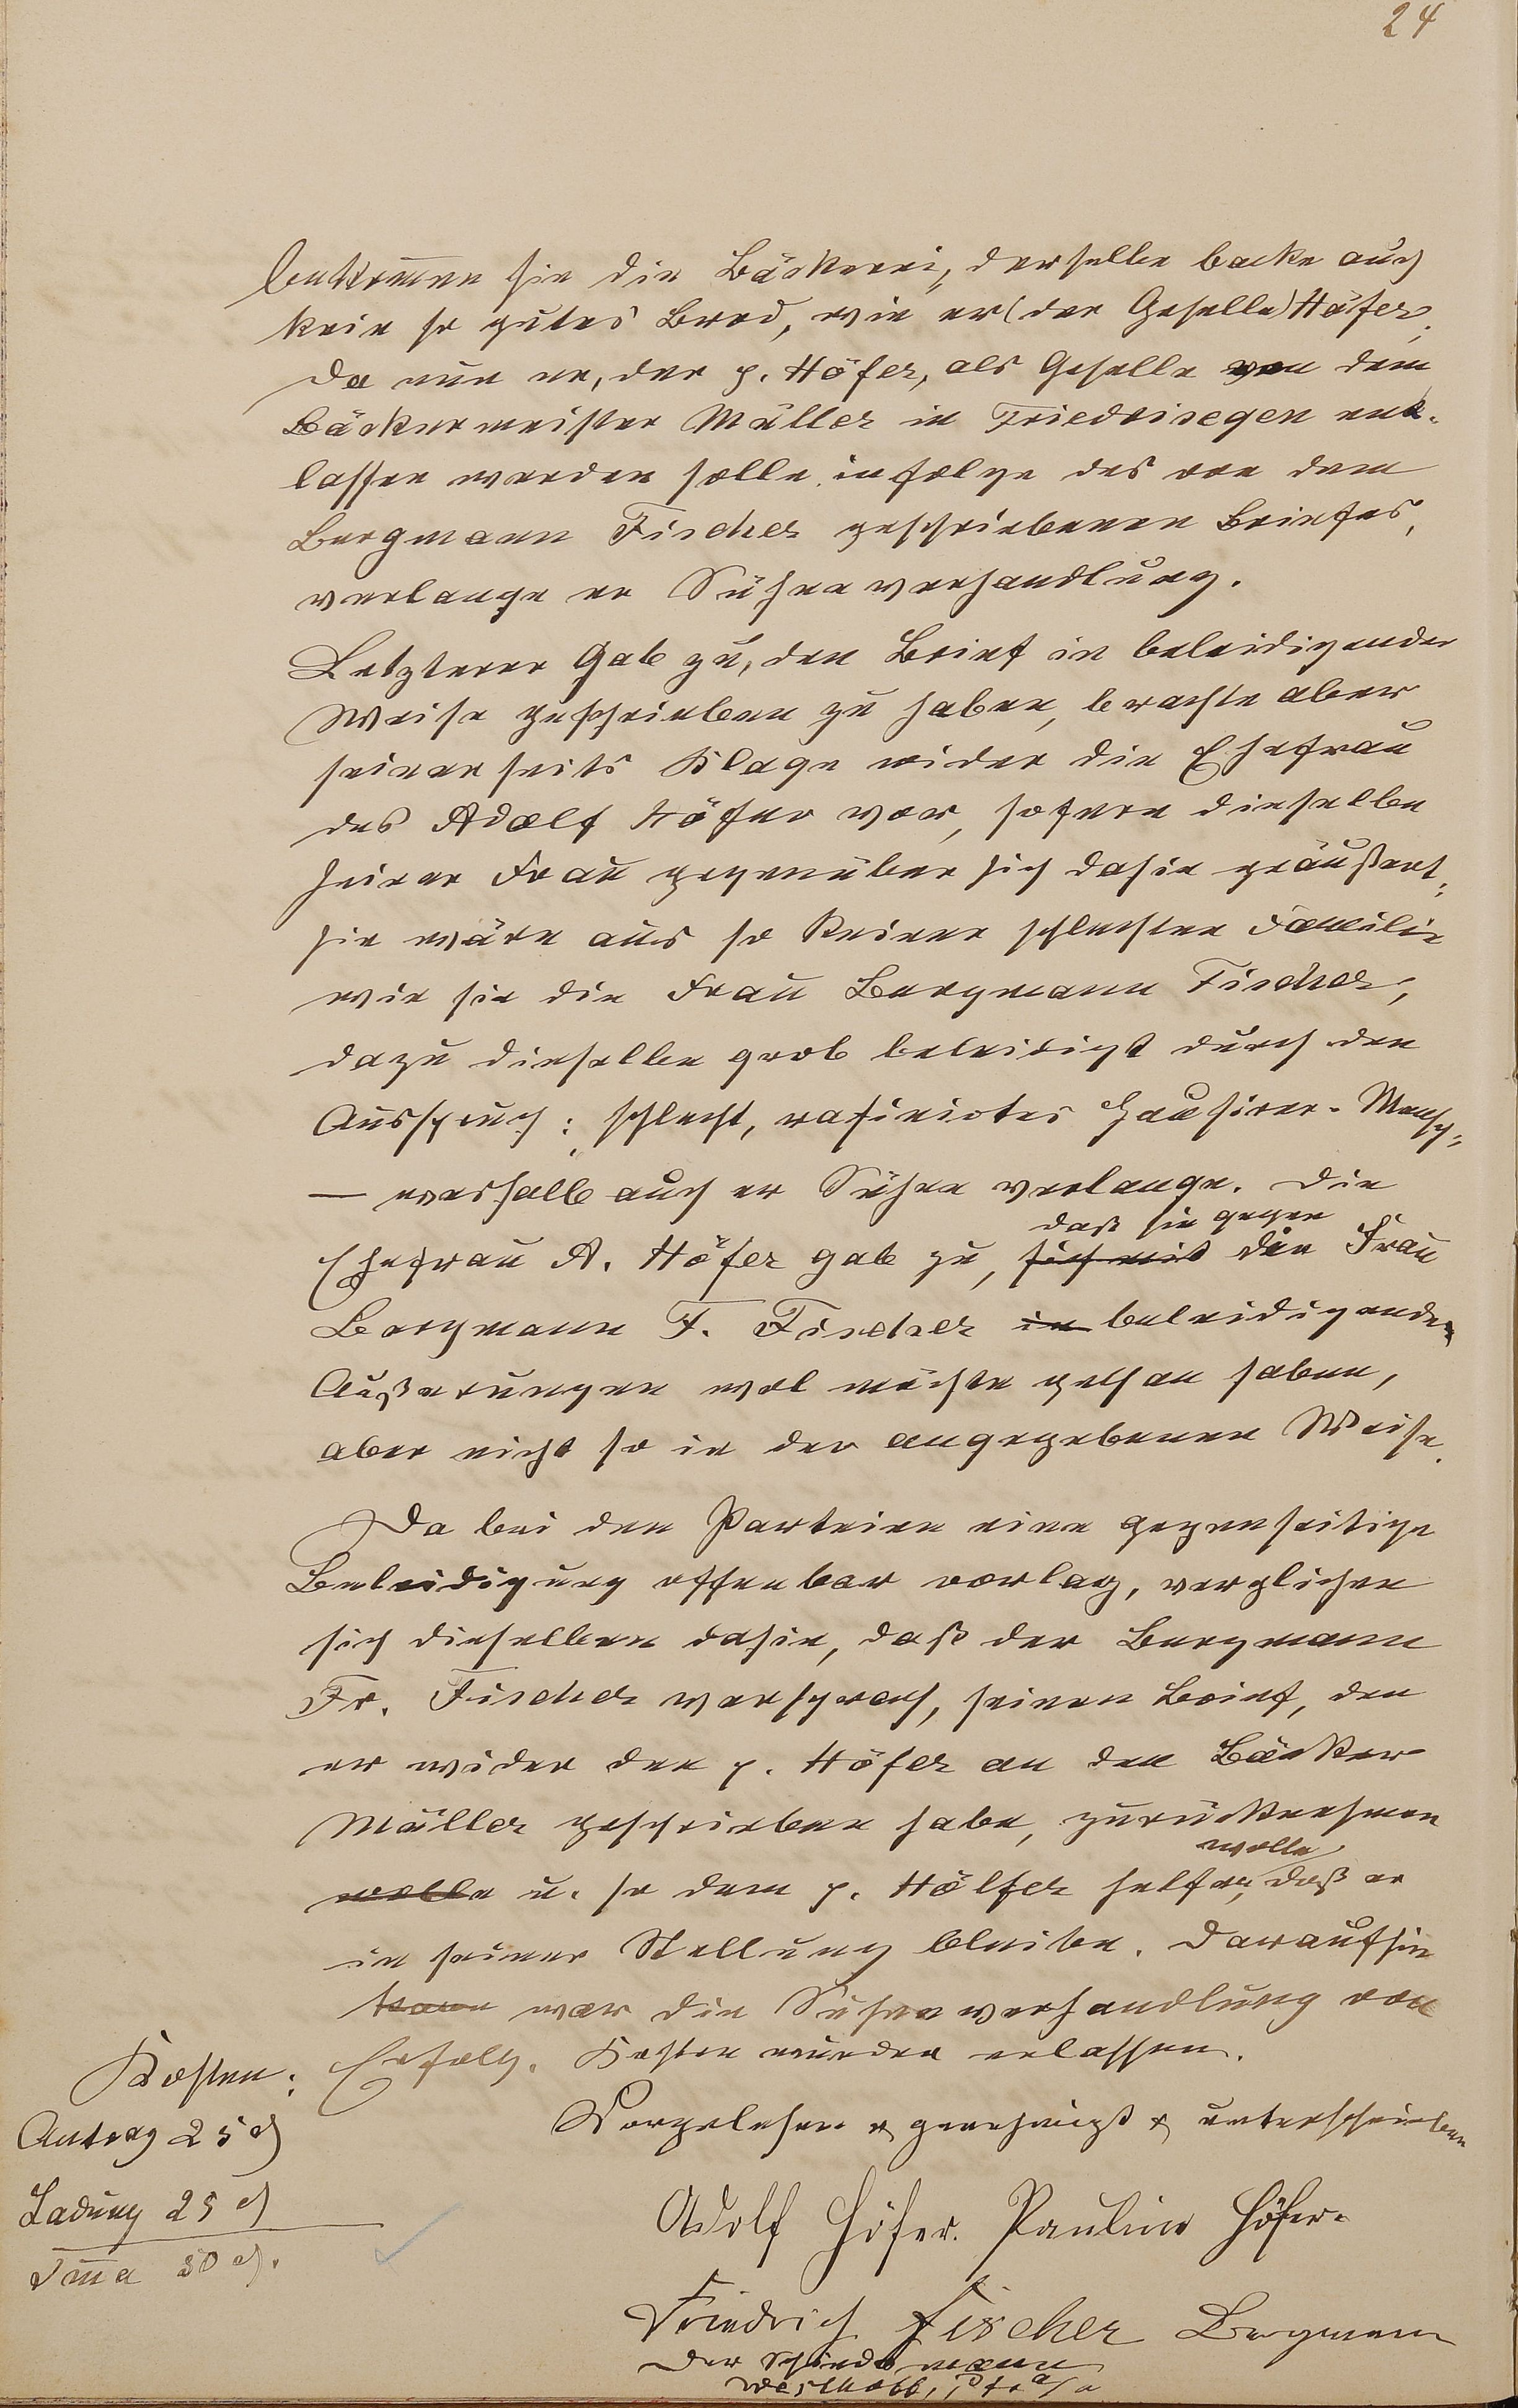 24
bekommen sie die Bäckerei, derselbe backe auch
kein so gutes Brod, wie er (der Geselle) Höfer.
Da nun er, der p. Höfer, als Geselle von dem
Bäckermeister Müller in Friedrisegen ent-
lassen werden solle infolge des von dem
Bergmann Fischer geschriebenen Briefes,
verlange er Sühneverhandlung.
Letzterer Gab zu, den Brief in beleidigender
Weise geschrieben zu haben, brachte aber
seinerseits Klage wider die Ehefrau
des Adolf Höfer vor, sofern dieselbe
seiner Frau gegenüber sich dahin geäußert,
sie wäre aus so keiner schlechten Familie
wie sie die Frau Bergmann Fischer,
dazu dieselbe grob beleidigt durch den
Ausspruch: schlecht, rafinirtes Hausirer-Mensch;
— weshalb auch er Sühne verlange. Die
daß sie gegen
Ehefrau A. Höfer gab zu, sich mit die Frau
Bergmann F. Fischer in beleidigenden
Äußerungen wol möchte gethan haben,
aber nicht so in der angegebenen Weise.
Da bei den Parteien eine gegenseitige
Beleidigung offenbar vorlag, verglichen
sich dieselben dahin, daß der Bergmann
Fr. Fischer versprach, seinen Brief, den
er wider den p. Höfer an den Bäcker
Müller geschrieben habe, zurücknehmen
wolle
wolle u. so dem p. Hölfer helfen, daß er
in seiner Stellung bleibe. Daraufhin
war die Sühneverhandlung von
Erfolg. Kosten wurden erlassen.
Kosten:
Antrag 25 ₰
Ladung 25 ₰
Sma 50 ₰.
Vorgelesen & genehmigt & unterschrieben
Adolf Höfer. Pauline Höfer.
Friedrich Fischer Bergmann
Der Schiedsmann